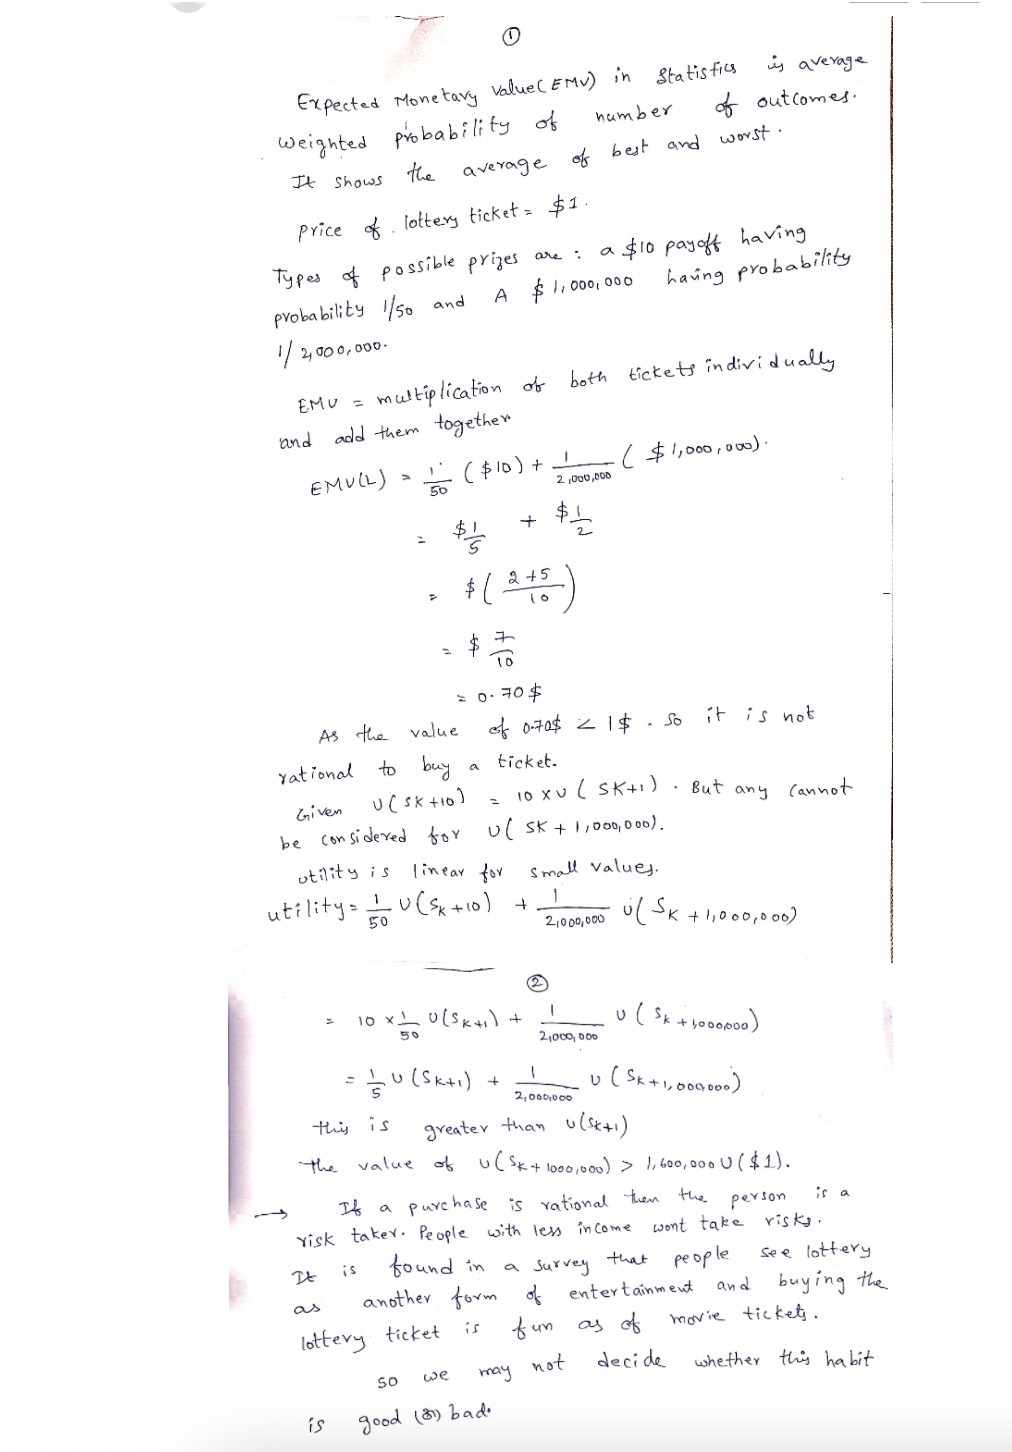 ①
Expected Monetary Value (EMV) in Statistics is average
weighted probability of number of outcomes.
It shows the average of best and worst.
price of lottery ticket = $1.
Types of possible prizes are : a $10 payoff having
probability 1/50 and A $1,000,000 having probability
1/2,000,000.
EMV = multiplication of both tickets individually
and add them together
EMV(L) = 1/50 ($10) + 1/2,000,000 ($1,000,000).
= $1/5 + $1/2
= $(2+5/10)
= $7/10
= 0.70$
As the value of 0.70$ < 1$. so it is not
rational to buy a ticket.
Given U(SK+10) = 10 x U(SK+1). But any cannot
be considered for U(SK+1,000,000).
utility is linear for small values.
utility = 1/50 U(SK+10) + 1/2,000,000 U(SK+1,000,000)
②
= 10 x 1/50 U(SK+1) + 1/2,000,000 U(SK+1,000,000)
= 1/5 U(SK+1) + 1/2,000,000 U(SK+1,000,000)
this is greater than U(SK+1)
The value of U(SK+1000,000) > 1,600,000 U($1).
→ If a purchase is rational then the person is a
risk taker. People with less income wont take risks.
It is found in a survey that people see lottery
as another form of entertainment and buying the
lottery ticket is fun as of movie tickets.
so we may not decide whether this habit
is good (or) bad.